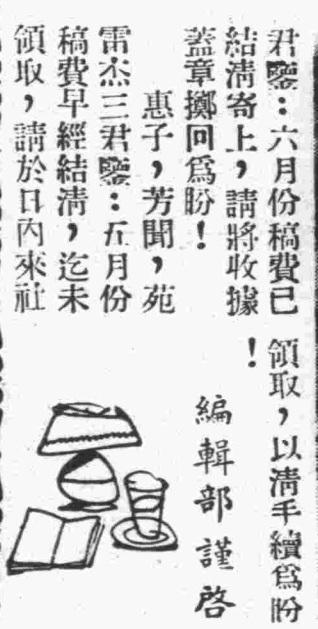 君鑒：六月份稿費已
結淸寄上，請將收據
蓋章擲回爲盼！
惠子，芳聞，苑
雷杰三君鑒：五月份
稿費早經結淸，迄未
領取，請於日內來社
領取，以淸手續爲盼
！
編輯部謹啓